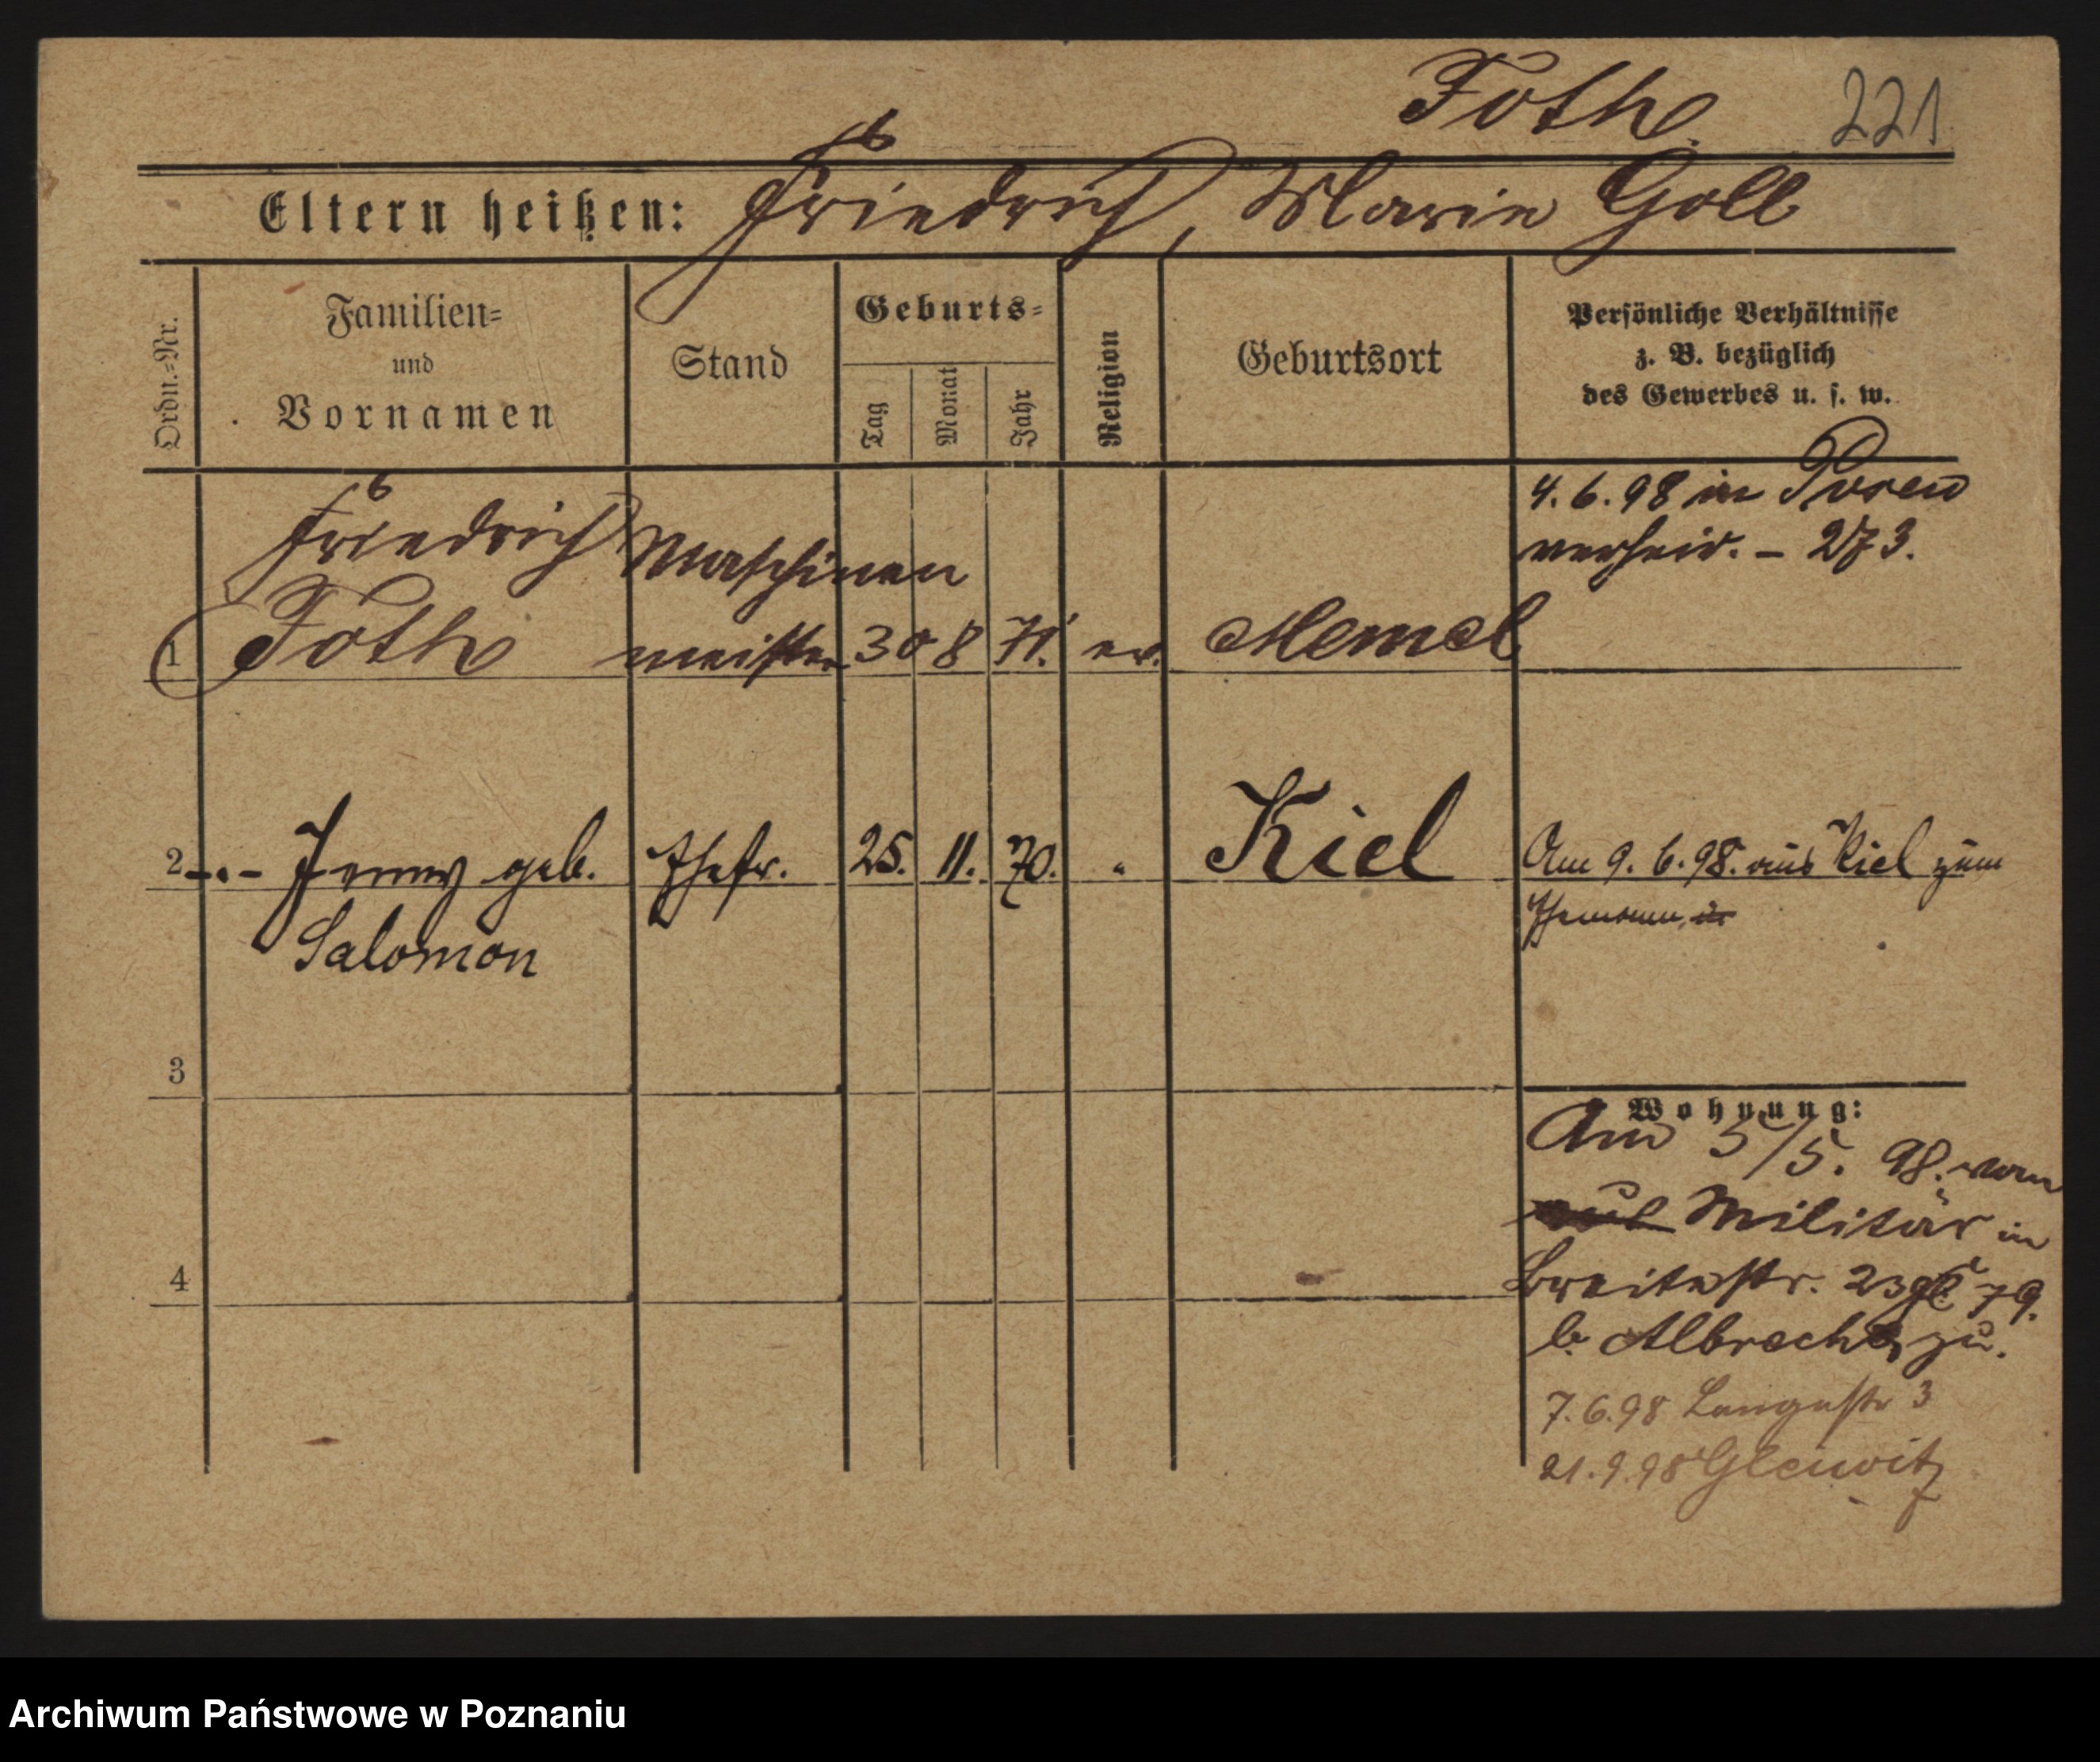 Foth
221
Eltern heißen: Friedrich, Marie Goll
Ordn.-Nr.
Familien-
und
Vornamen
Stand
Geburts-
Tag
Monat
Jahr
Religion
Geburtsort
Persönliche Verhältnisse
z. B. bezüglich
des Gewerbes u. s. w.
4. 6. 98 in Posen
verheir. – 273.
Friedrich Maschinen
1 Foth meister 30 8 71. ev. Memel
2 -.- Jenny geb. Ehefr. 25. 11. 70. " Kiel
Salomon
Am 9. 6. 98. aus Kiel zum
Ehemann, in
3
Wohnung:
Am 5/5. 98. vom
aus Militär in
4
Breitestr. 23 79.
b. Albrecht, zu.
7. 6. 98 Langestr 3
21. 9. 98 Gleiwitz
Archiwum Państwowe w Poznaniu